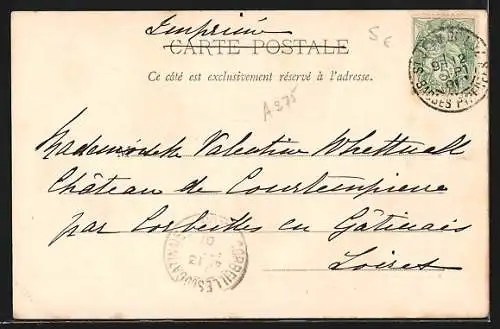 Imprimé
CARTE POSTALE
Ce côté est exclusivement réservé à l'adresse.
5€
A 275
Mademoiselle Valentine Whettnall
Château de Courtempierre
par Corbeilles en Gâtinais
Loiret
CORBEILLES DU GATINAIS
BASSES PYRENEES